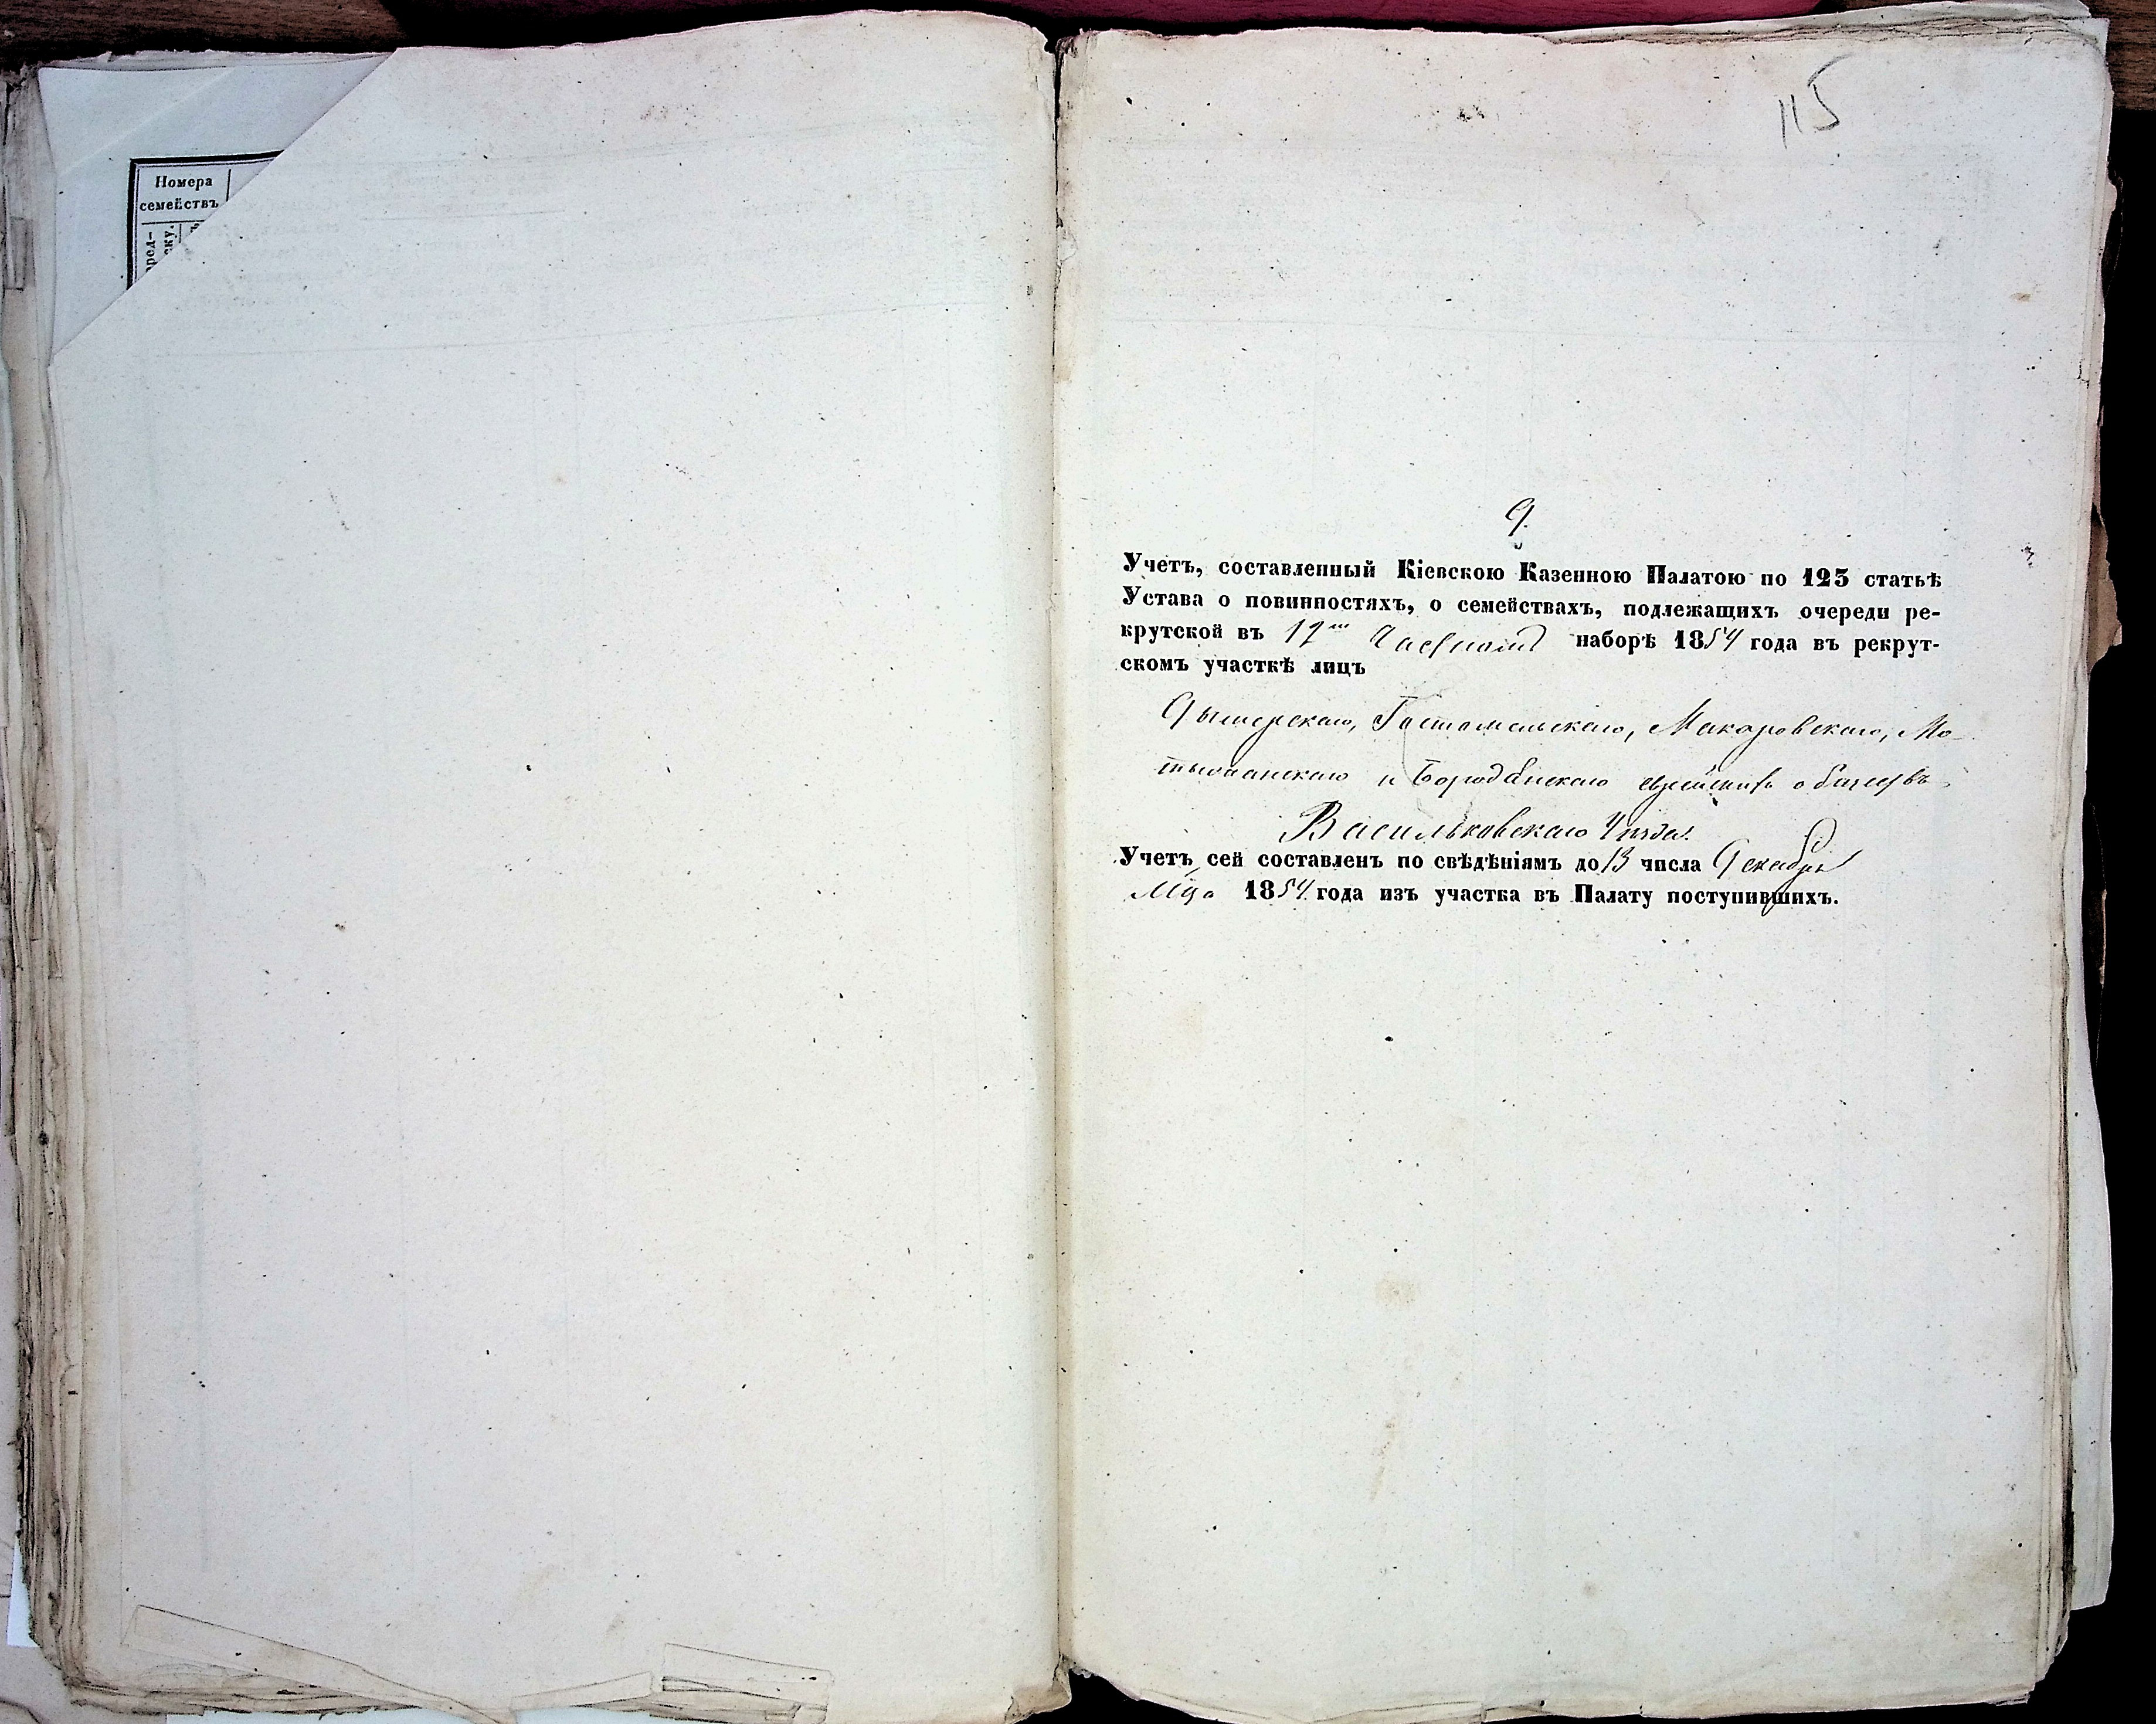 Номера
семействъ
115
9.
Учетъ, составленный Кіевскою Казенною Палатою по 123 статьѣ
Устава о повинностяхъ, о семействахъ, подлежащихъ очереди ре-
крутской въ 12м Частномъ наборѣ 1854 года въ рекрут-
скомъ участкѣ лицъ
Дымерскаго, Гостомельскаго, Макаровскаго, Мо-
тыжанскаго и Бородянскаго еврейскихъ обществъ
Васильковскаго Уѣзда.
Учетъ сей составленъ по свѣдѣніямъ до 13 числа Декабря
Мца 1854 года изъ участка въ Палату поступившихъ.